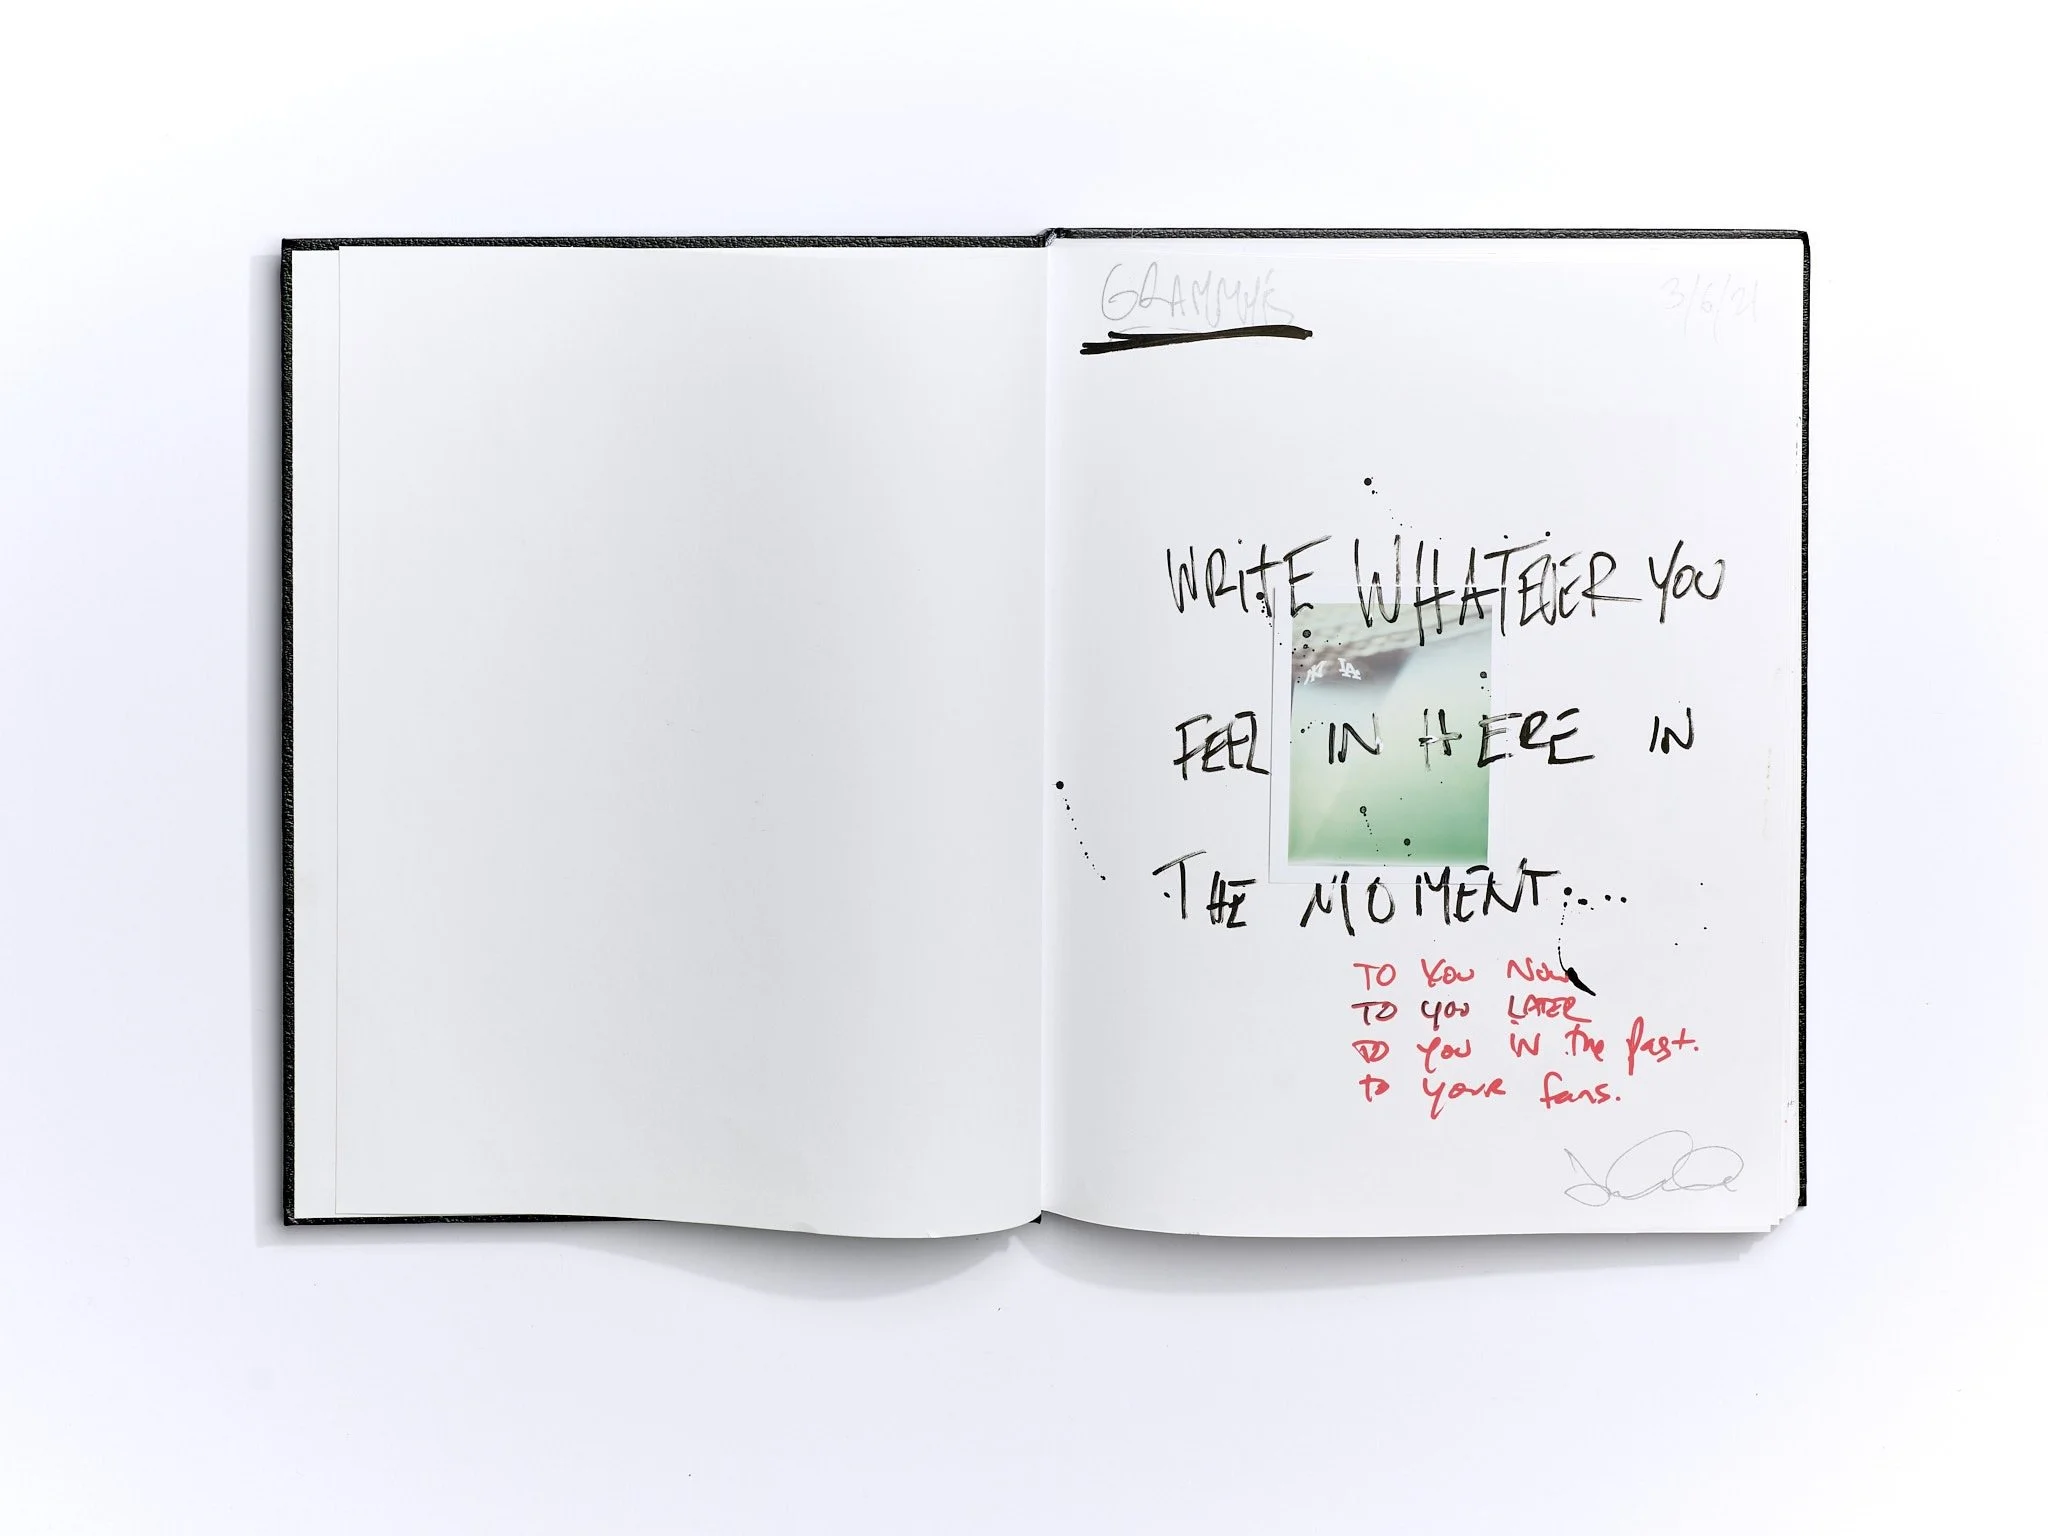 GRAMMY'S
3/6/21
WRITE WHATEVER YOU
LA
FEEL IN HERE IN
THE MOMENT:...
TO YOU NOW
TO YOU LATER
TO YOU IN the past.
to your fans.